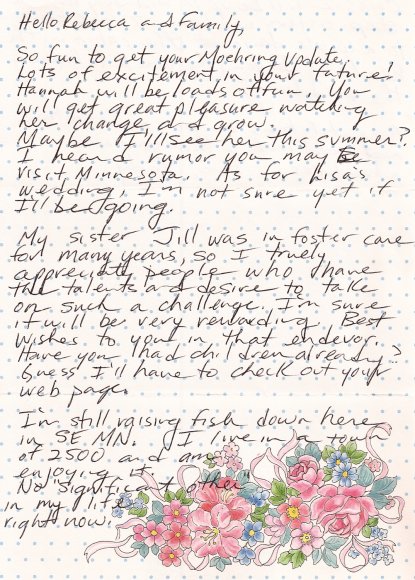 Hello Rebecca and Family,
So fun to get your Moehring Update.
Lots of excitement in your future!
Hannah will be loads of fun. You
will get great pleasure watching
her change and grow.
Maybe I'll see her this summer?
I heard rumor you may be
visit, Minnesota. As for Lisa's
wedding, I'm not sure yet if
I'll be going.
My sister Jill was in foster care
for many years, so I truely
appreciate people who have
the talents and desire to take
on such a challenge. I'm sure
it will be very rewarding. Best
wishes to you in that endevor.
Have you had children already?
Guess I'll have to check out your
web page.
I'm still raising fish down here
in SE MN. I live in a town
of 2500 and am
enjoying it.
No "significant other"
in my life
right now.